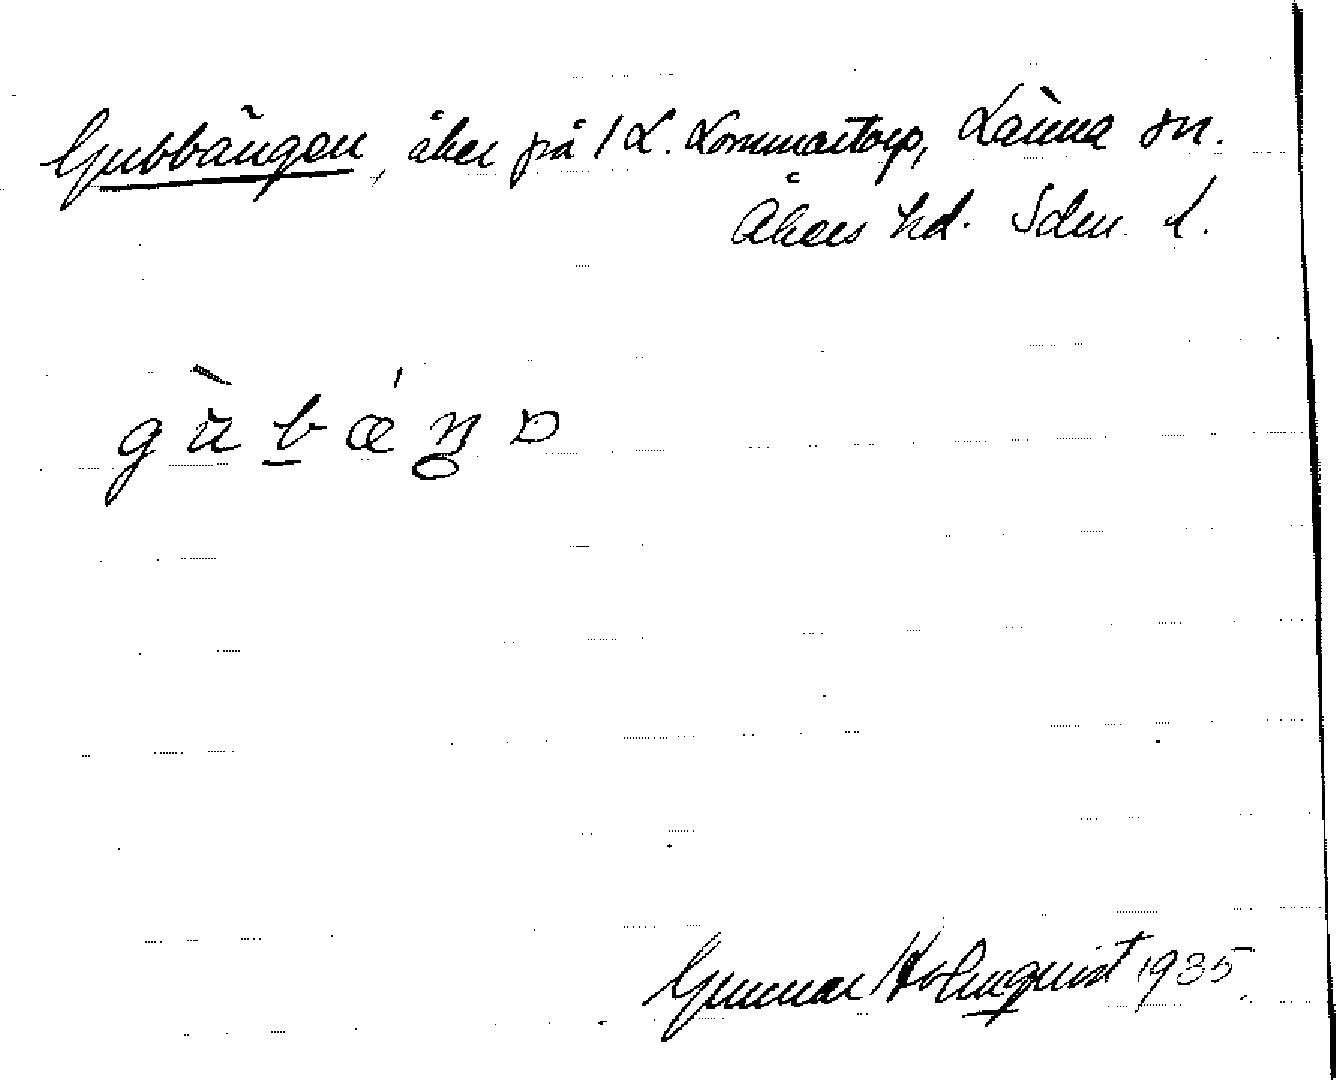 Gubbängen, åker på 1 L. Lommartorp, Länna sn.
Åkers hd. Sdm. l.
gùbǽŋɒ
Gunnar Holmquist 1935.